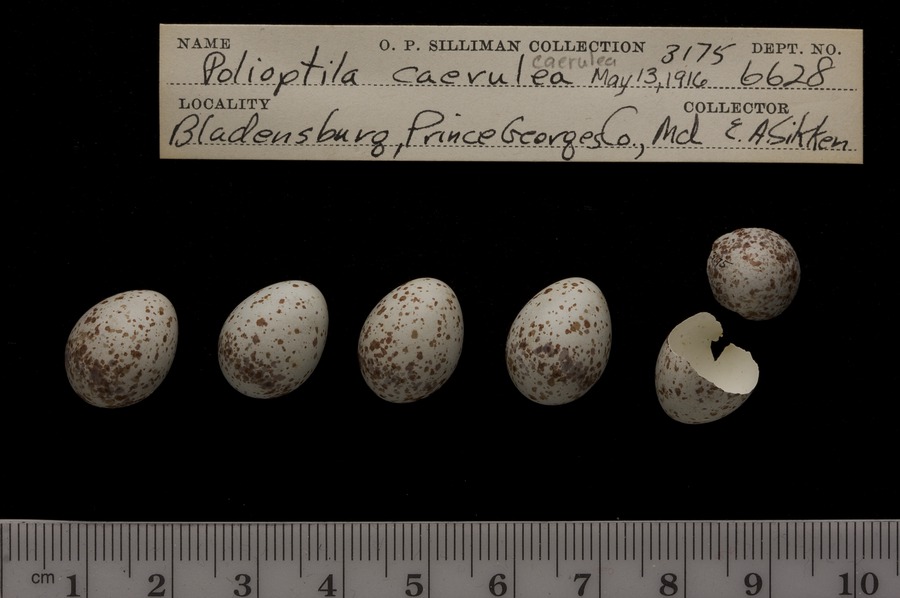 NAME O. P. SILLIMAN COLLECTION 3175 DEPT. NO.
caerulea
Polioptila caerulea May 13, 1916 6628
LOCALITY COLLECTOR
Bladensburg, Prince Georges Co., Md E. A. Sikken
cm 1 2 3 4 5 6 7 8 9 10